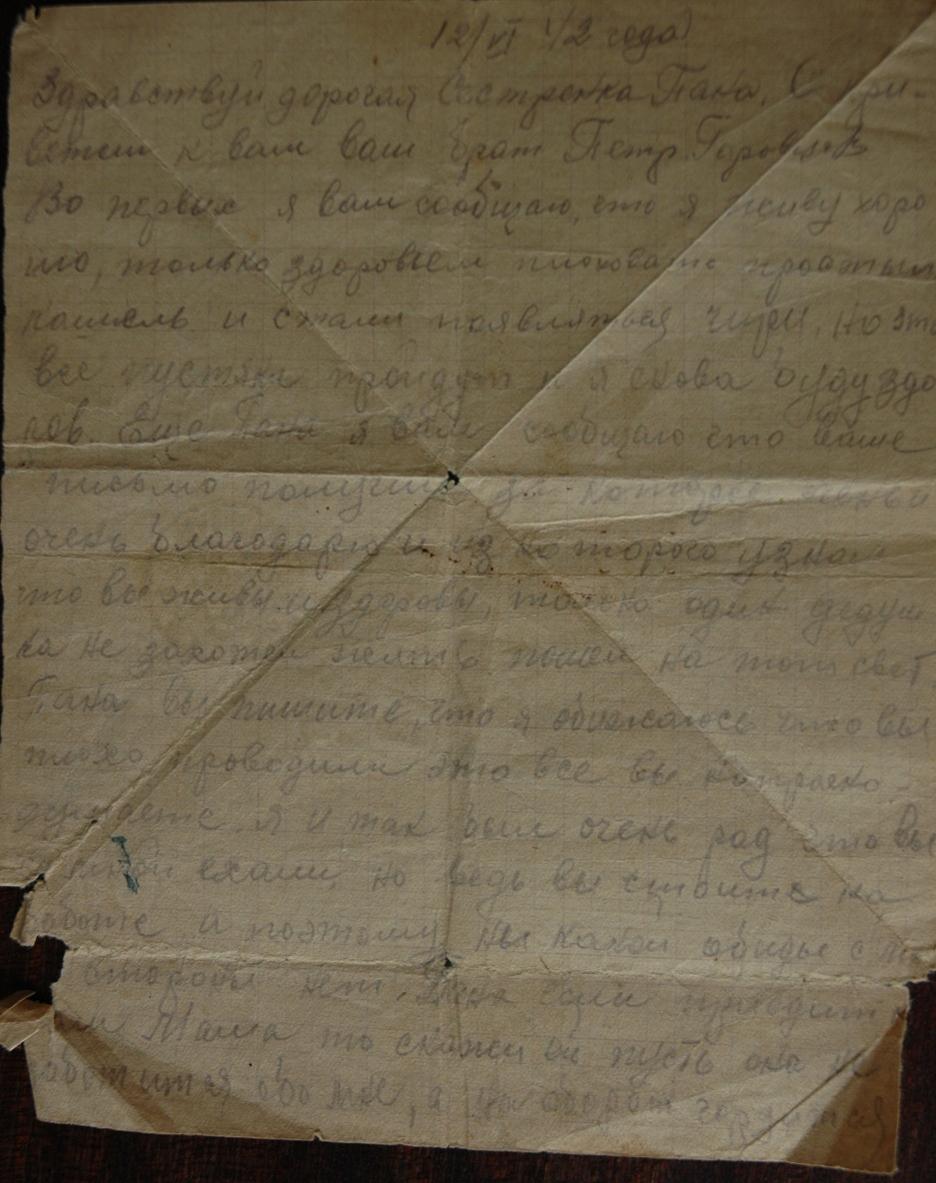 12/VI 42 года
Здравствуй дорогая Сестренка Пана. С при-
ветом к вам ваш брат Петр
Во первых я вам сообщаю, что я живу хоро
шо, только здоровьем плоховато
кашель и стали появляться чирьи, но это
все пустяки пройдут и я снова буду здо
ров. Еще Пана я вам сообщаю что ваше
письмо получил за которое
очень благодарю и из которого узнал
что вы живы и здоровы, только один дедуш
ка не захотел пошел на тот свет
Пана вы пишите, что я обижаюсь что вы
плохо проводили это все вы напрасно
думаете. я и так был очень рад что вы
мной ехали, но ведь вы стоите на
работе а поэтому ны какой обиды с
стороны нет. Пана если приедит
Мама то скажи ей пусть она не
обо мне, а на оборот гордится